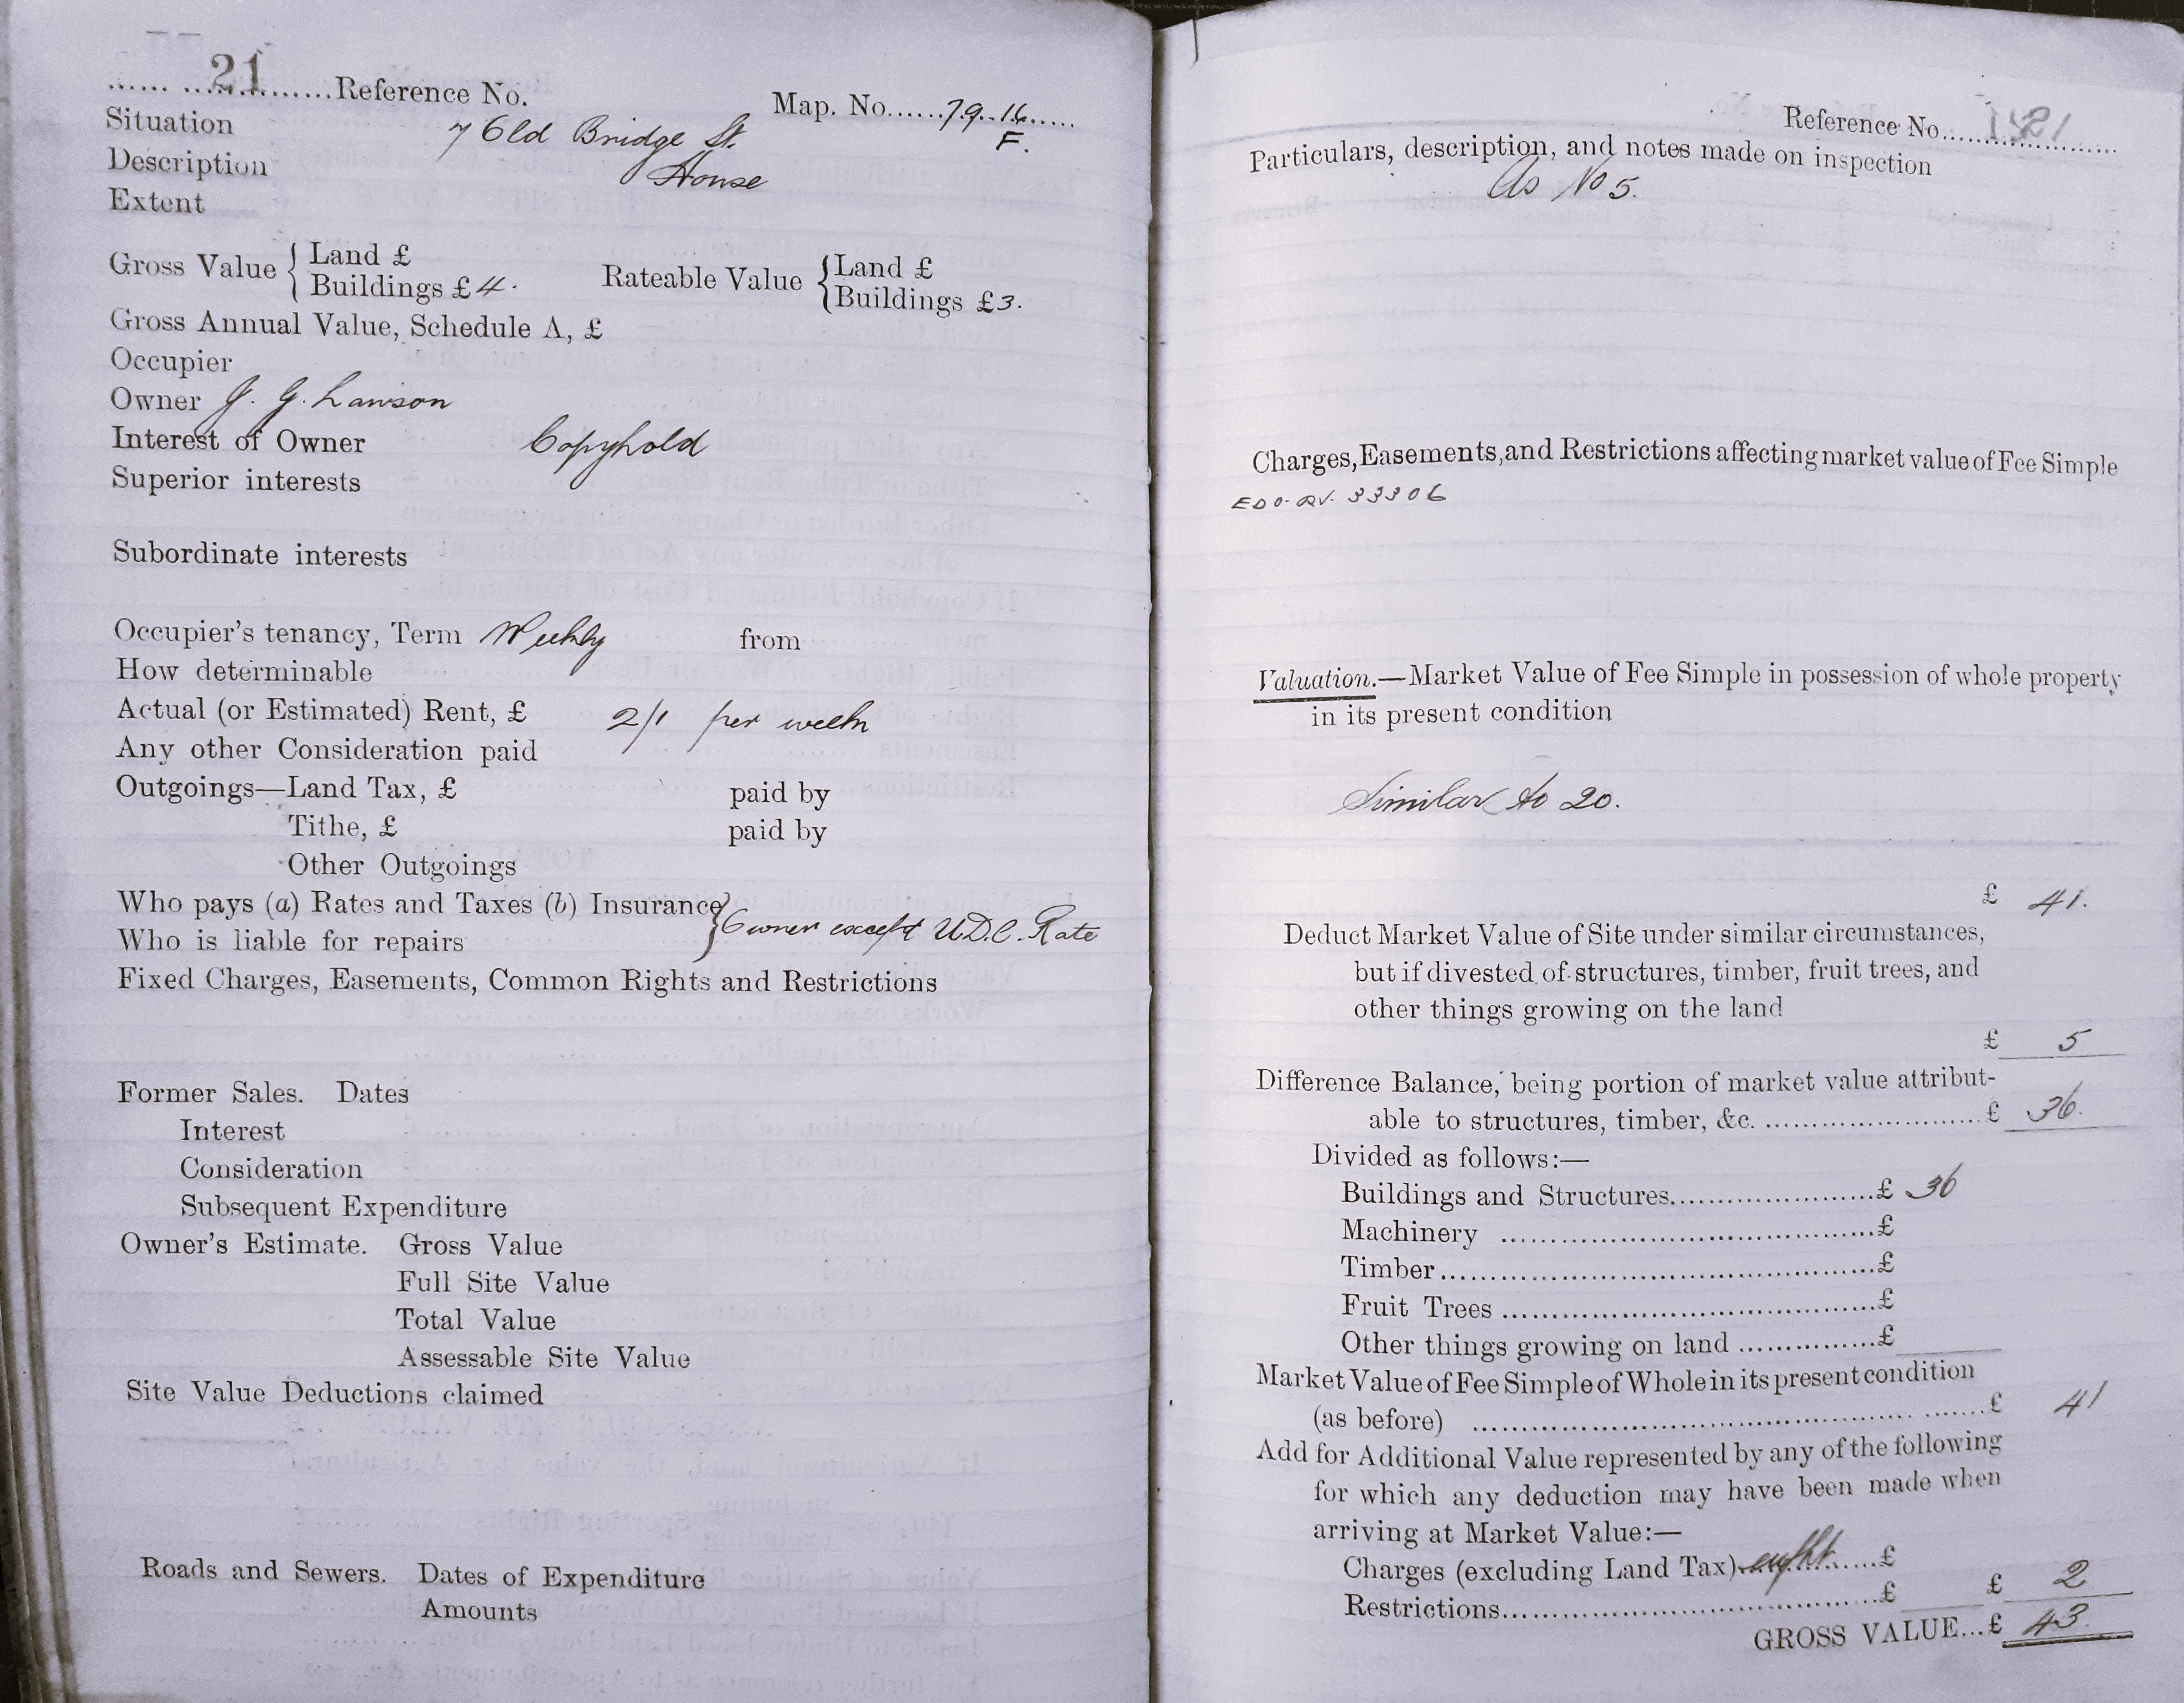 21 Reference No.
Map. No. 79.16 F.
Situation 7 Old Bridge St.
Description House
Extent
Gross Value { Land £
Buildings £ 4.
Rateable Value { Land £
Buildings £3.
Gross Annual Value, Schedule A, £
Occupier
Owner J. G. Lawson
Interest of Owner Copyhold
Superior interests
Subordinate interests
Occupier's tenancy, Term Weekly from
How determinable
Actual (or Estimated) Rent, £ 2/1 per week
Any other Consideration paid
Outgoings—Land Tax, £ paid by
Tithe, £ paid by
Other Outgoings
Who pays (a) Rates and Taxes (b) Insurance
Who is liable for repairs } Owner except U.D.C. Rate
Fixed Charges, Easements, Common Rights and Restrictions
Former Sales. Dates
Interest
Consideration
Subsequent Expenditure
Owner's Estimate. Gross Value
Full Site Value
Total Value
Assessable Site Value
Site Value Deductions claimed
Roads and Sewers. Dates of Expenditure
Amounts
Reference No. 21
Particulars, description, and notes made on inspection
As No 5.
Charges, Easements, and Restrictions affecting market value of Fee Simple
33306
Valuation.—Market Value of Fee Simple in possession of whole property
in its present condition
Similar to 20.
£ 41.
Deduct Market Value of Site under similar circumstances,
but if divested of structures, timber, fruit trees, and
other things growing on the land
£ 5
Difference Balance, being portion of market value attribut-
able to structures, timber, &c. £ 36.
Divided as follows:—
Buildings and Structures £ 36
Machinery £
Timber £
Fruit Trees £
Other things growing on land £
Market Value of Fee Simple of Whole in its present condition
(as before) £ 41
Add for Additional Value represented by any of the following
for which any deduction may have been made when
arriving at Market Value:—
Charges (excluding Land Tax) £
Restrictions £ £ 2
GROSS VALUE...£ 43.